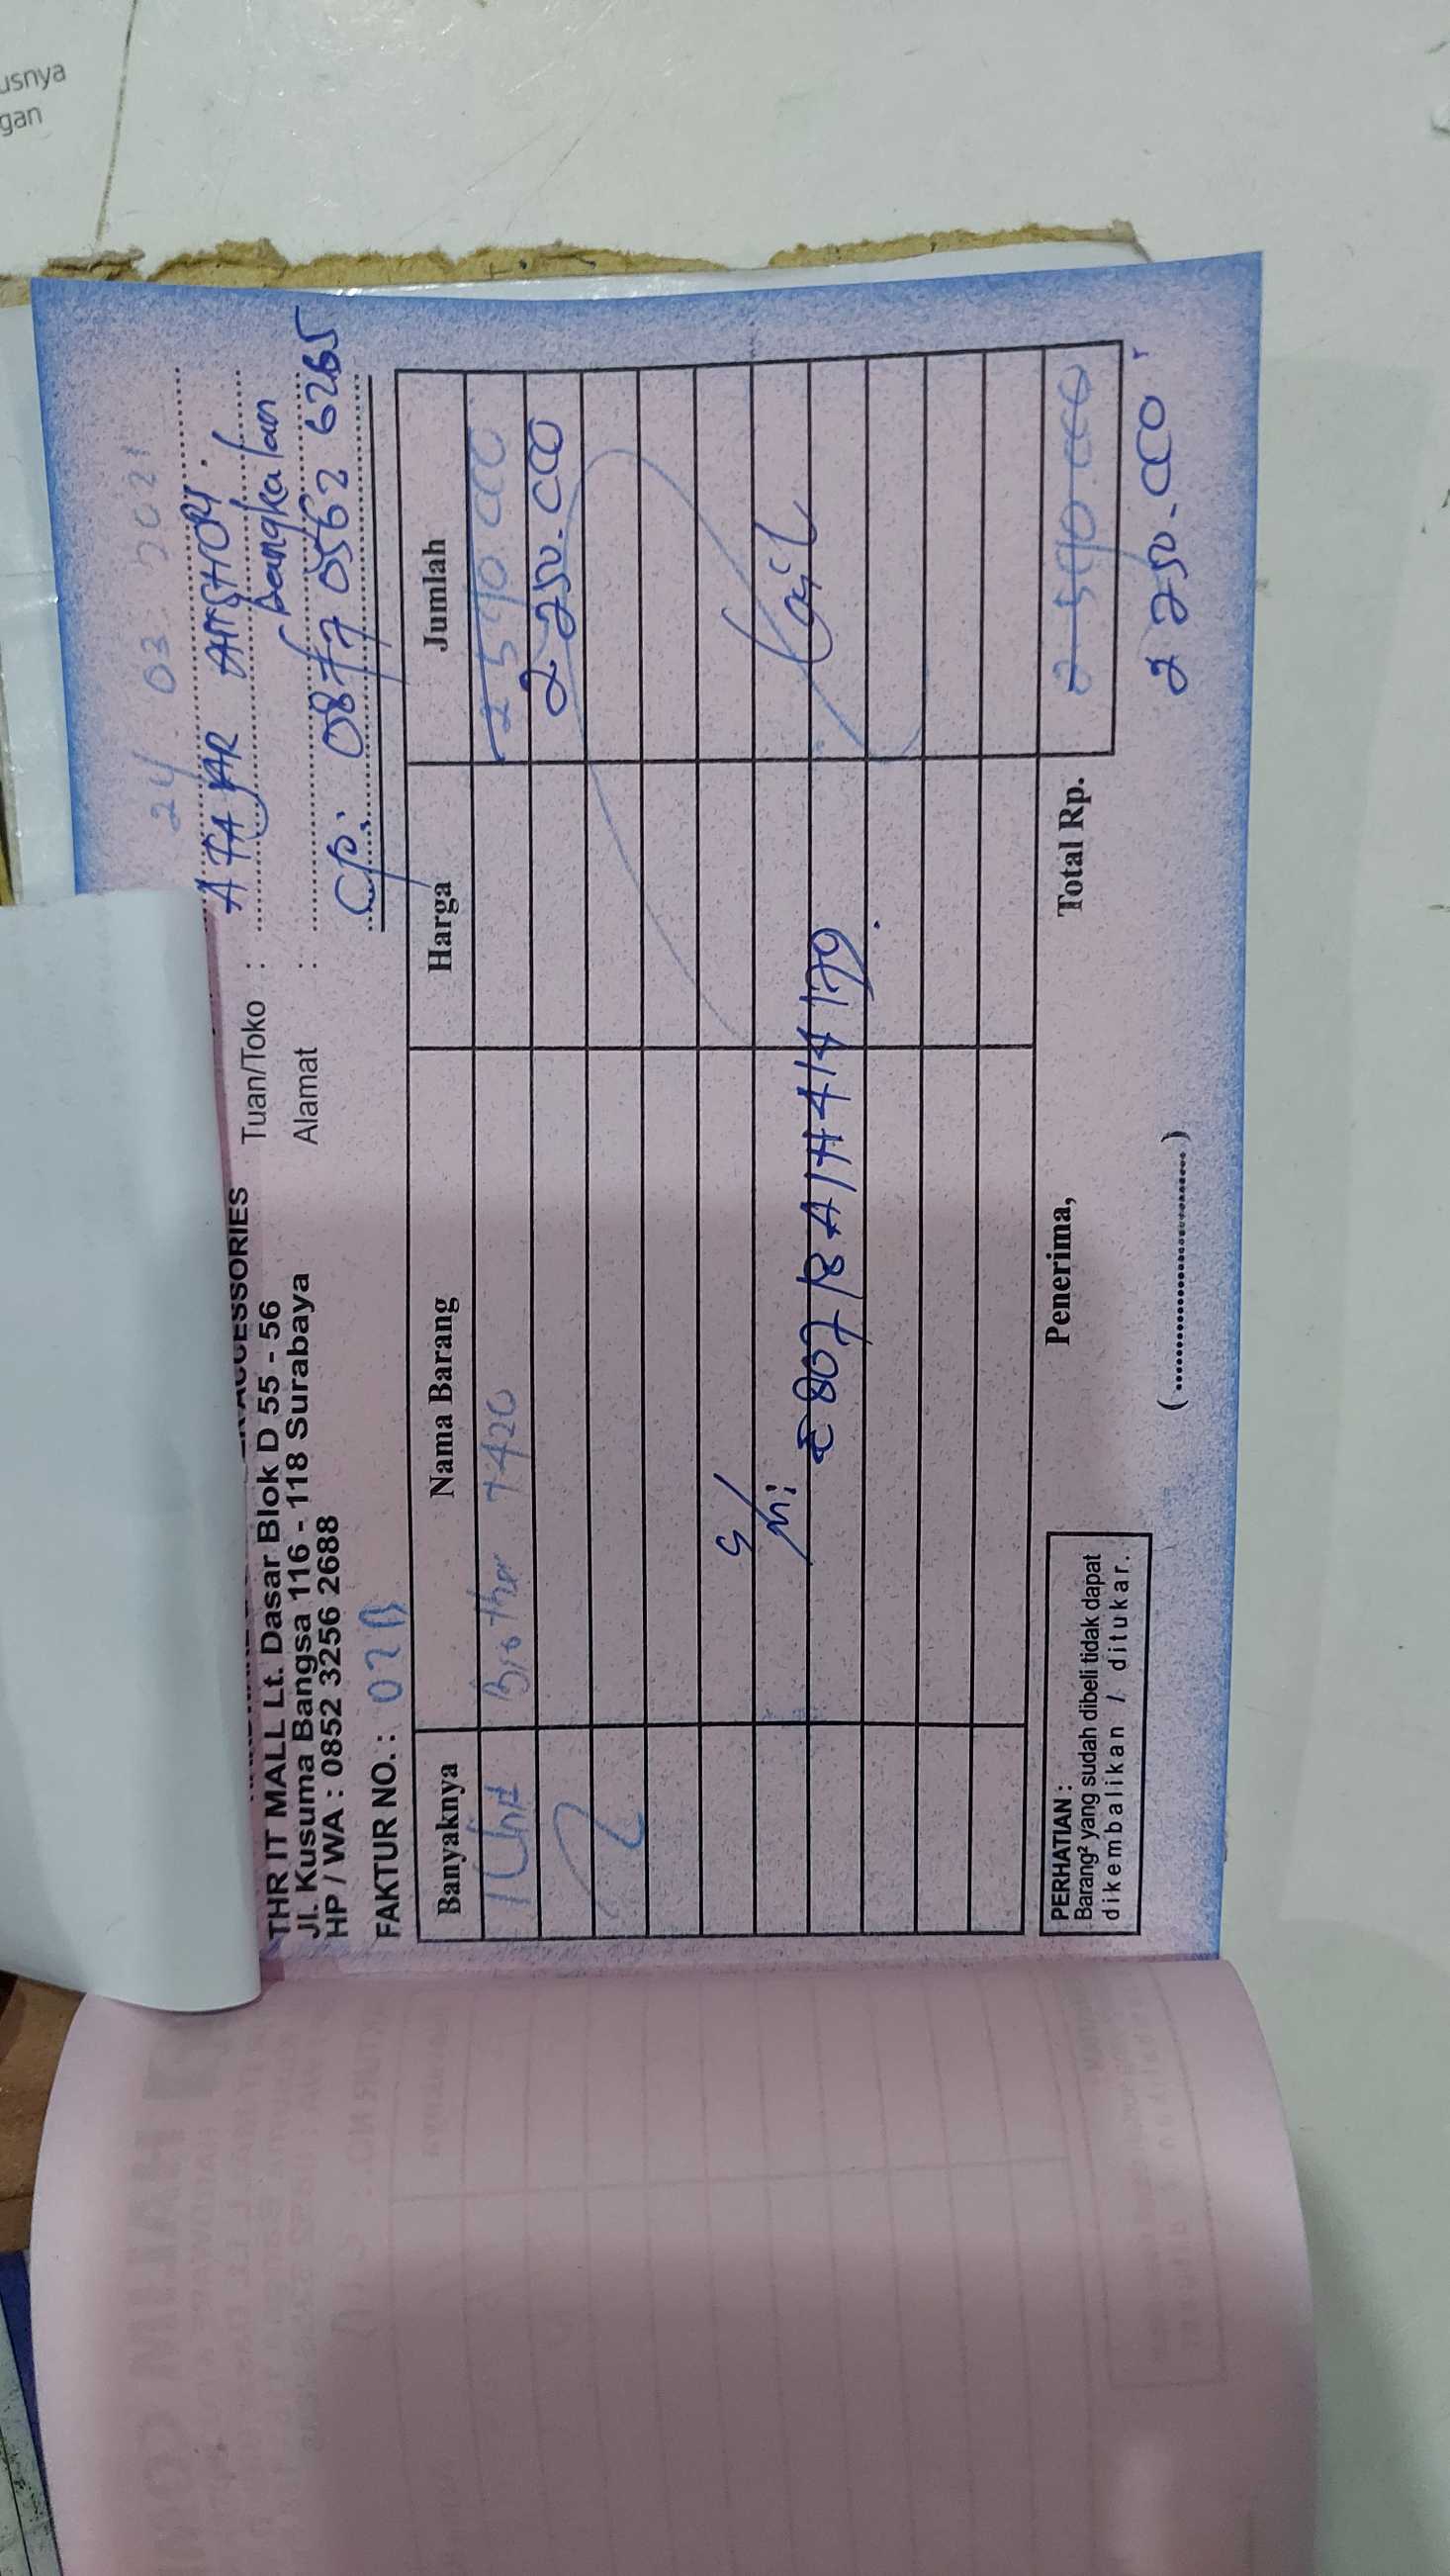 usnya
gan
24 03 2021
ACCESSORIES
THR IT MALL Lt. Dasar Blok D 55 - 56
Jl. Kusuma Bangsa 116 - 118 Surabaya
HP / WA : 0852 3256 2688
Tuan/Toko :
Alamat : bangkalan
CP: 0877 0562 6265
FAKTUR NO. : 02
Banyaknya Nama Barang Harga Jumlah
1 Unit Brother T420 2 590.000
2 250.000
S/N:
PERHATIAN :
Barang² yang sudah dibeli tidak dapat
dikembalikan / ditukar.
Penerima,
(........................)
Total Rp. 2 590.000
2 250.000